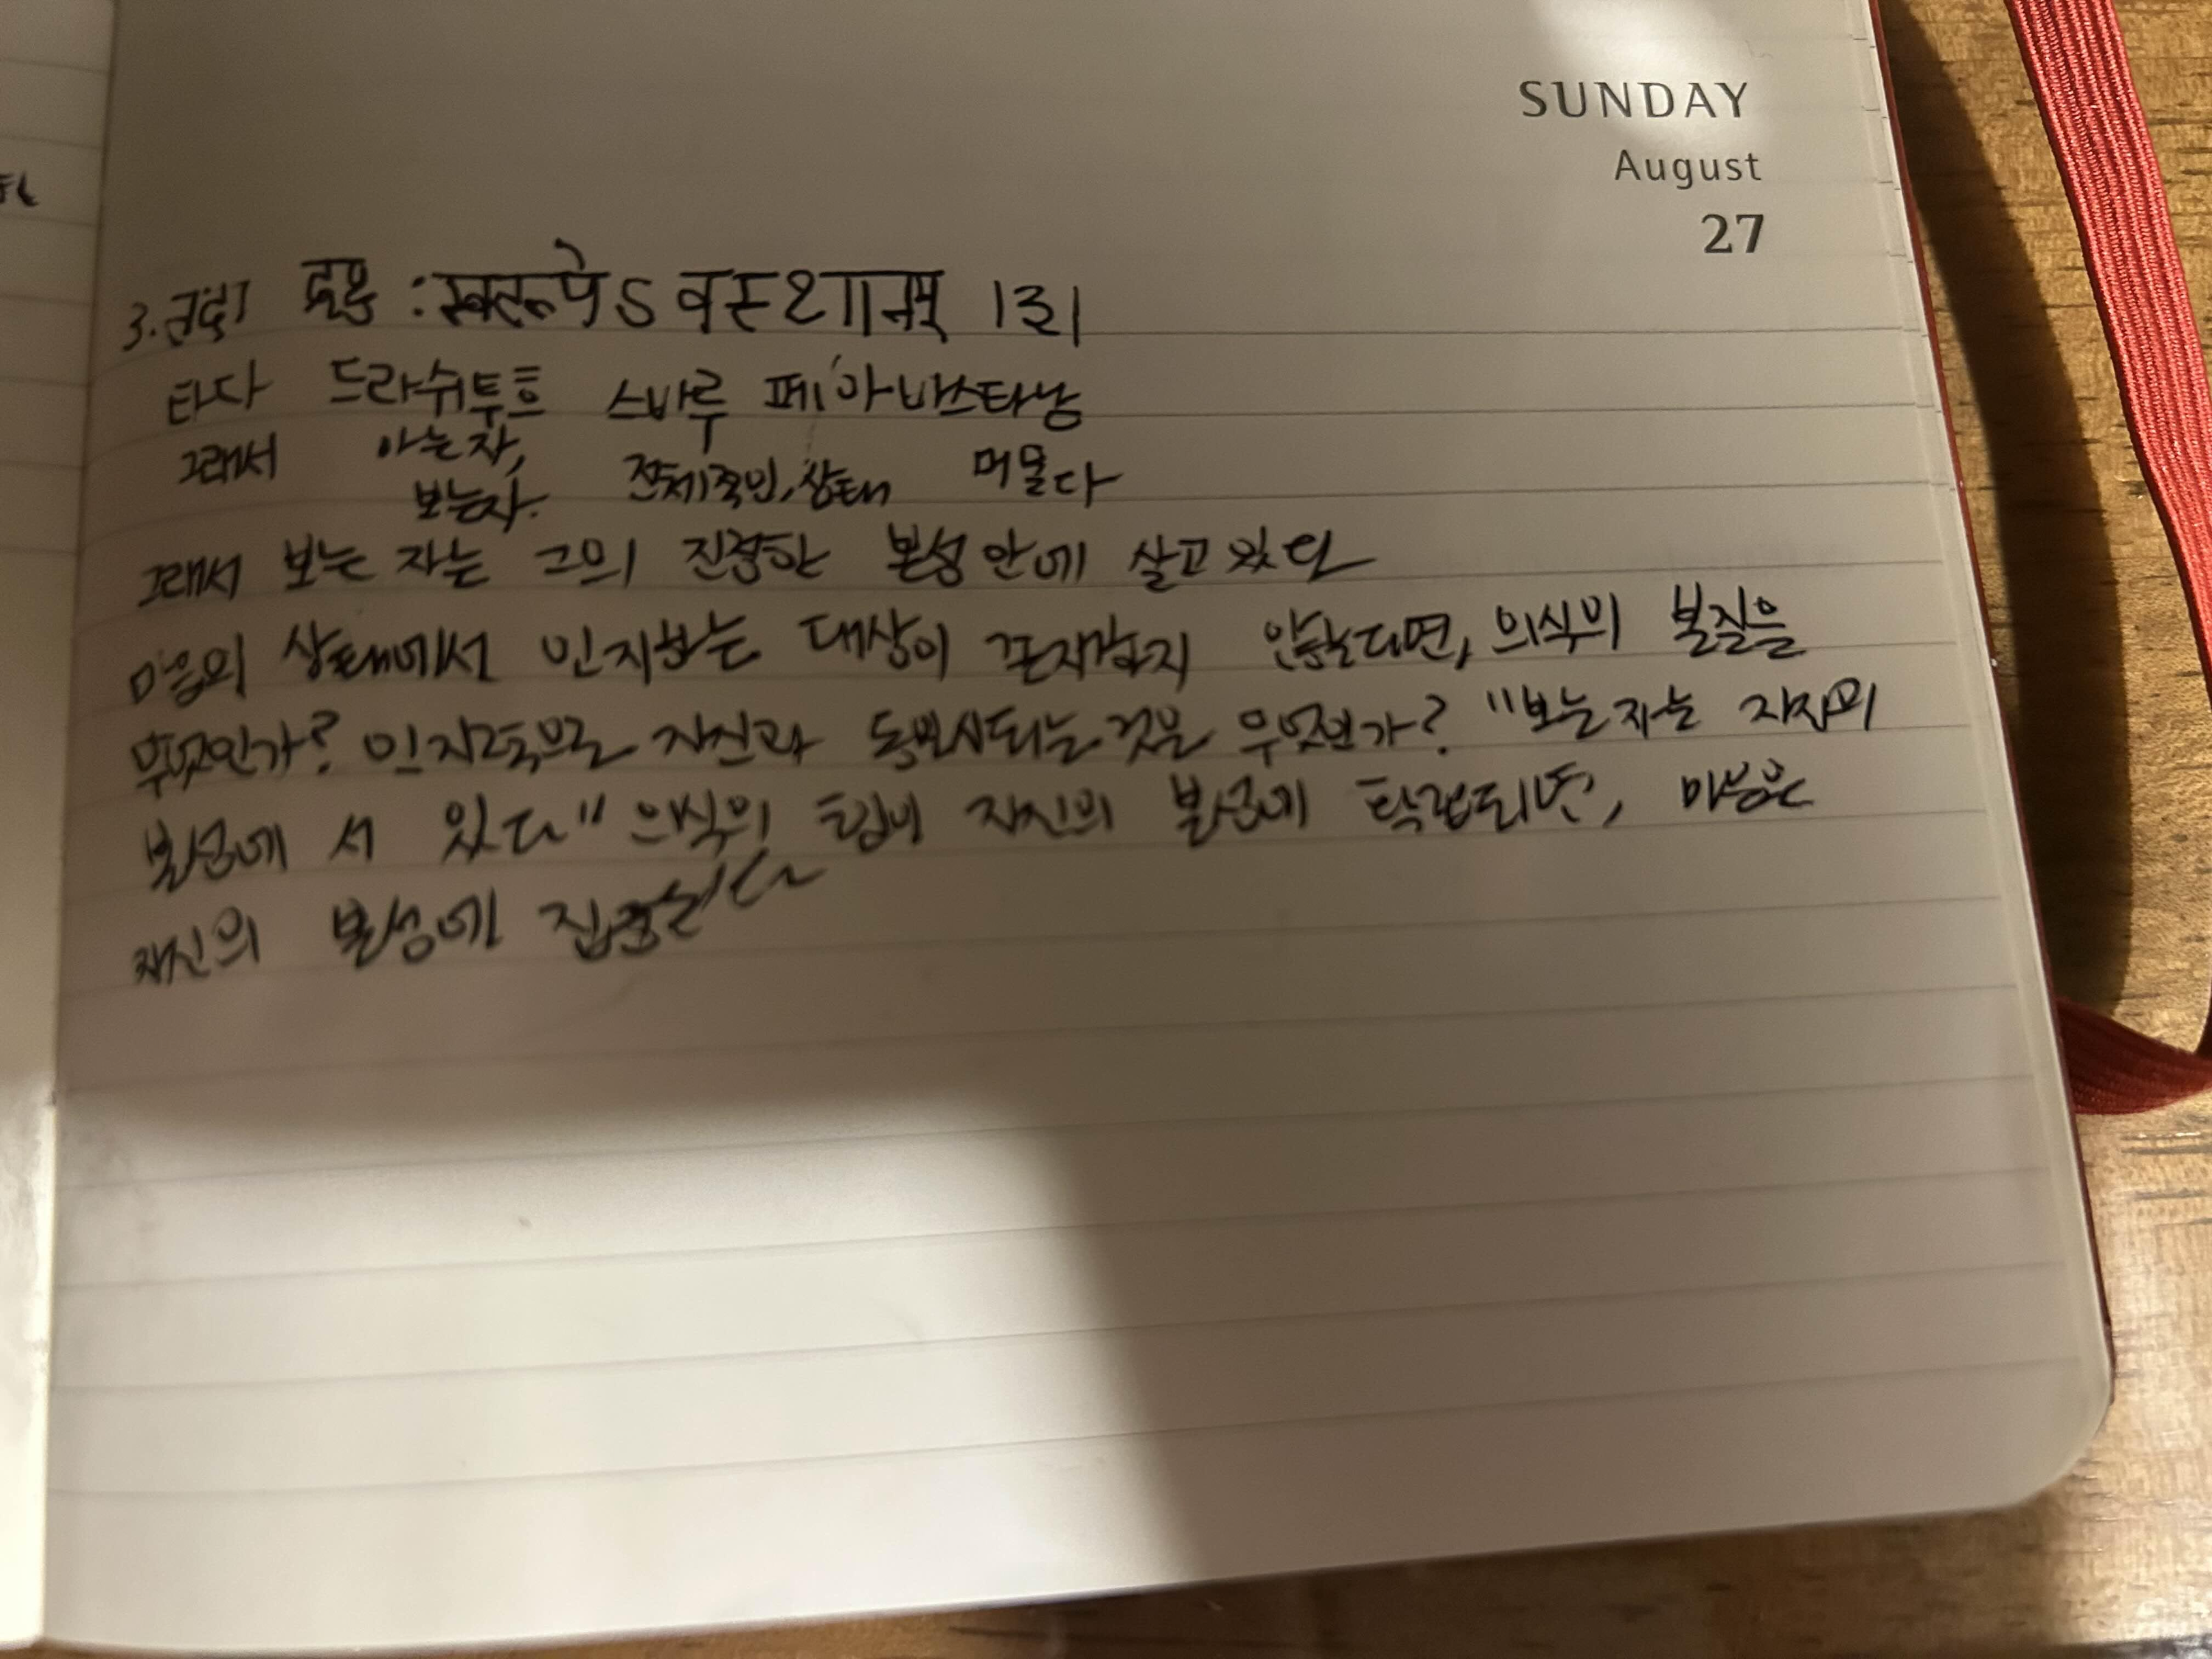 SUNDAY
August
27
3. तदा द्रष्टुः स्वरूपेऽवस्थानम् ।३।
타다 드라쉬투흐 스바루 페 아바스타남
그래서 아는자, 전체적인, 상태 머물다
보는자.
그래서 보는 자는 그의 진정한 본성 안에 살고 있다
마음의 상태에서 인지하는 대상이 존재하지 않는다면, 의식의 본질은
무엇인가? 인지적으로 자신과 동일시되는 것은 무엇인가? "보는 자는 자신의
본성에 서 있다" 의식의 힘이 자신의 본성에 확립되면, 마음은
자신의 본성에 집중된다